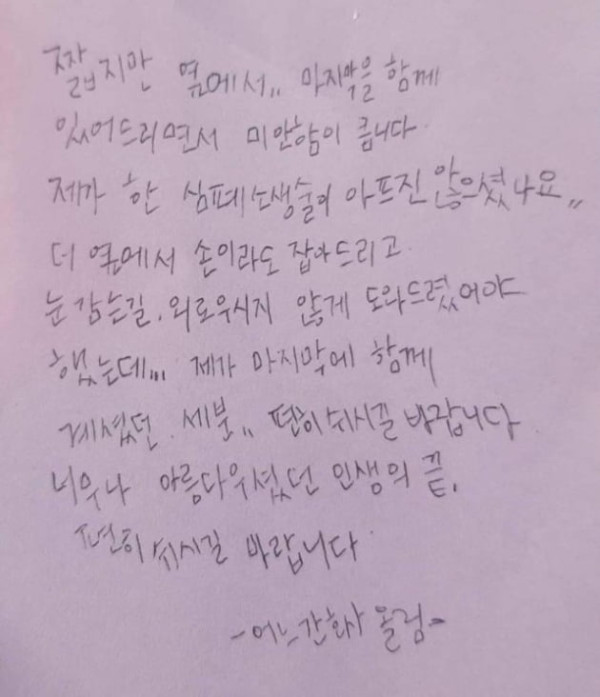 짧지만 옆에서,, 마지막을 함께
있어드리면서 미안함이 큽니다.
제가 한 심폐소생술이 아프진 않으셨나요,,
더 옆에서 손이라도 잡아드리고
눈 감는길. 외로우시지 않게 도와드렸어야
했는데,,, 제가 마지막에 함께
계셨던. 세분,, 편히쉬시길 바랍니다
너무나 아름다우셨던 인생의 끝,
편히쉬시길 바랍니다
-어느간호사 올림-